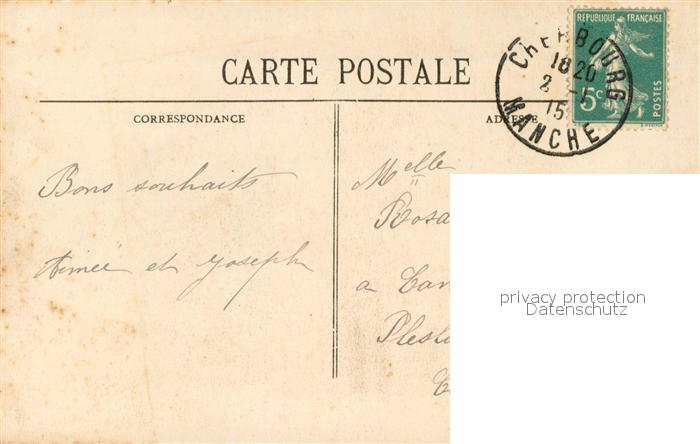 CARTE POSTALE
CORRESPONDANCE
ADRESSE
REPUBLIQUE FRANÇAISE
5c
POSTES
CHERBOURG
18 20
2 - 1
15
MANCHE
Bons souhaits
Aimée et Joseph
Melle
Rosa
a
privacy protection
Datenschutz